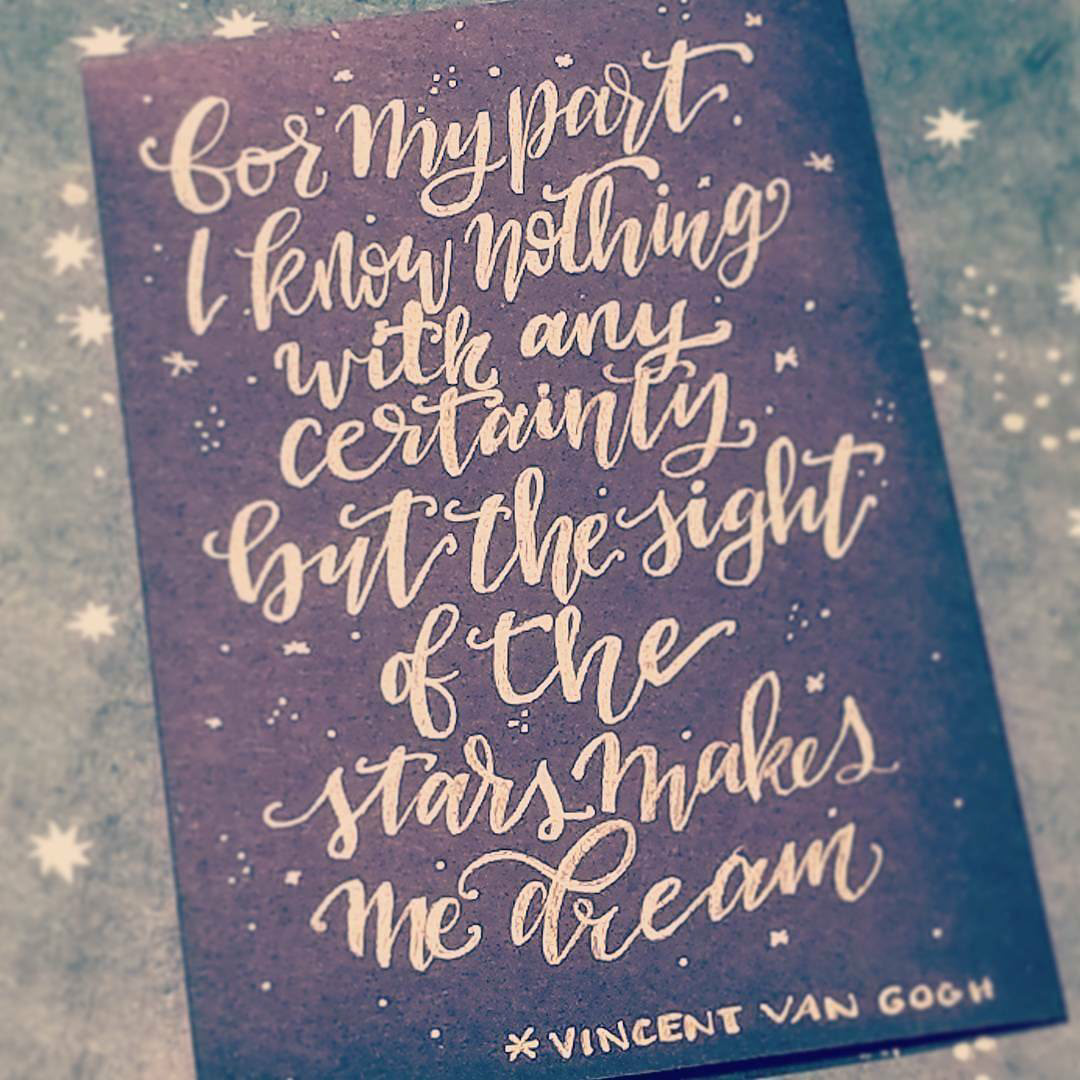 for my part
I know nothing
with any
certainty
but the sight
of the
stars makes
me dream
*VINCENT VAN GOGH